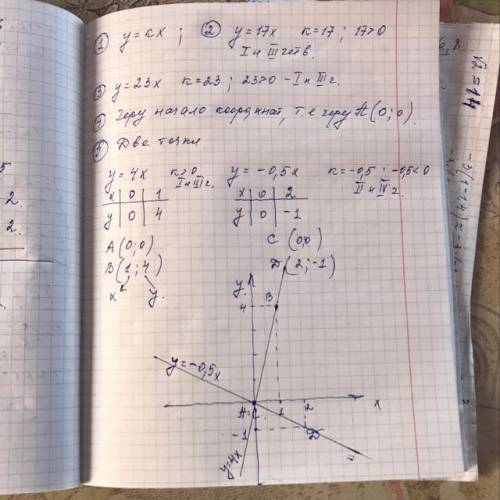 ① y=kx ; ② y=17x k=17 ; 17>0
I и III четв.
③ y=23x k=23 ; 23>0 – I и III ч.
④ Через начало координат, т.е через A(0;0)
⑤ Две точки
y=4x k>0 y=-0,5x k=-0,5 ; -0,5<0
I и III ч. II и IV ч.
x 0 1 x 0 2
y 0 4 y 0 -1
A(0;0) C(0;0)
B(1;4) D(2;-1)
x y
y
4 B
y=-0,5x
A=C 1 2 x
-1 D
y=4x